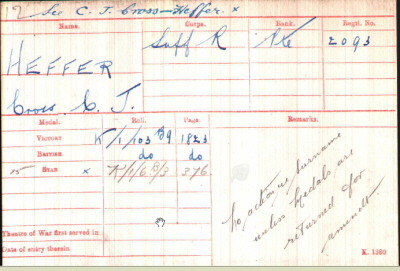 See C. J. Cross-Heffer. x
Name. Corps. Rank. Regtl. No.
HEFFER Suff R Pte 2093
Cross. C. J.
Medal. Roll. Page. Remarks.
Victory K/1/103 B9 1823
British do do
15 Star x K/1/6 B/3 376
No action re surname
unless medals are
returned for
amendt
Theatre of War first served in
Date of entry therein
K. 1380